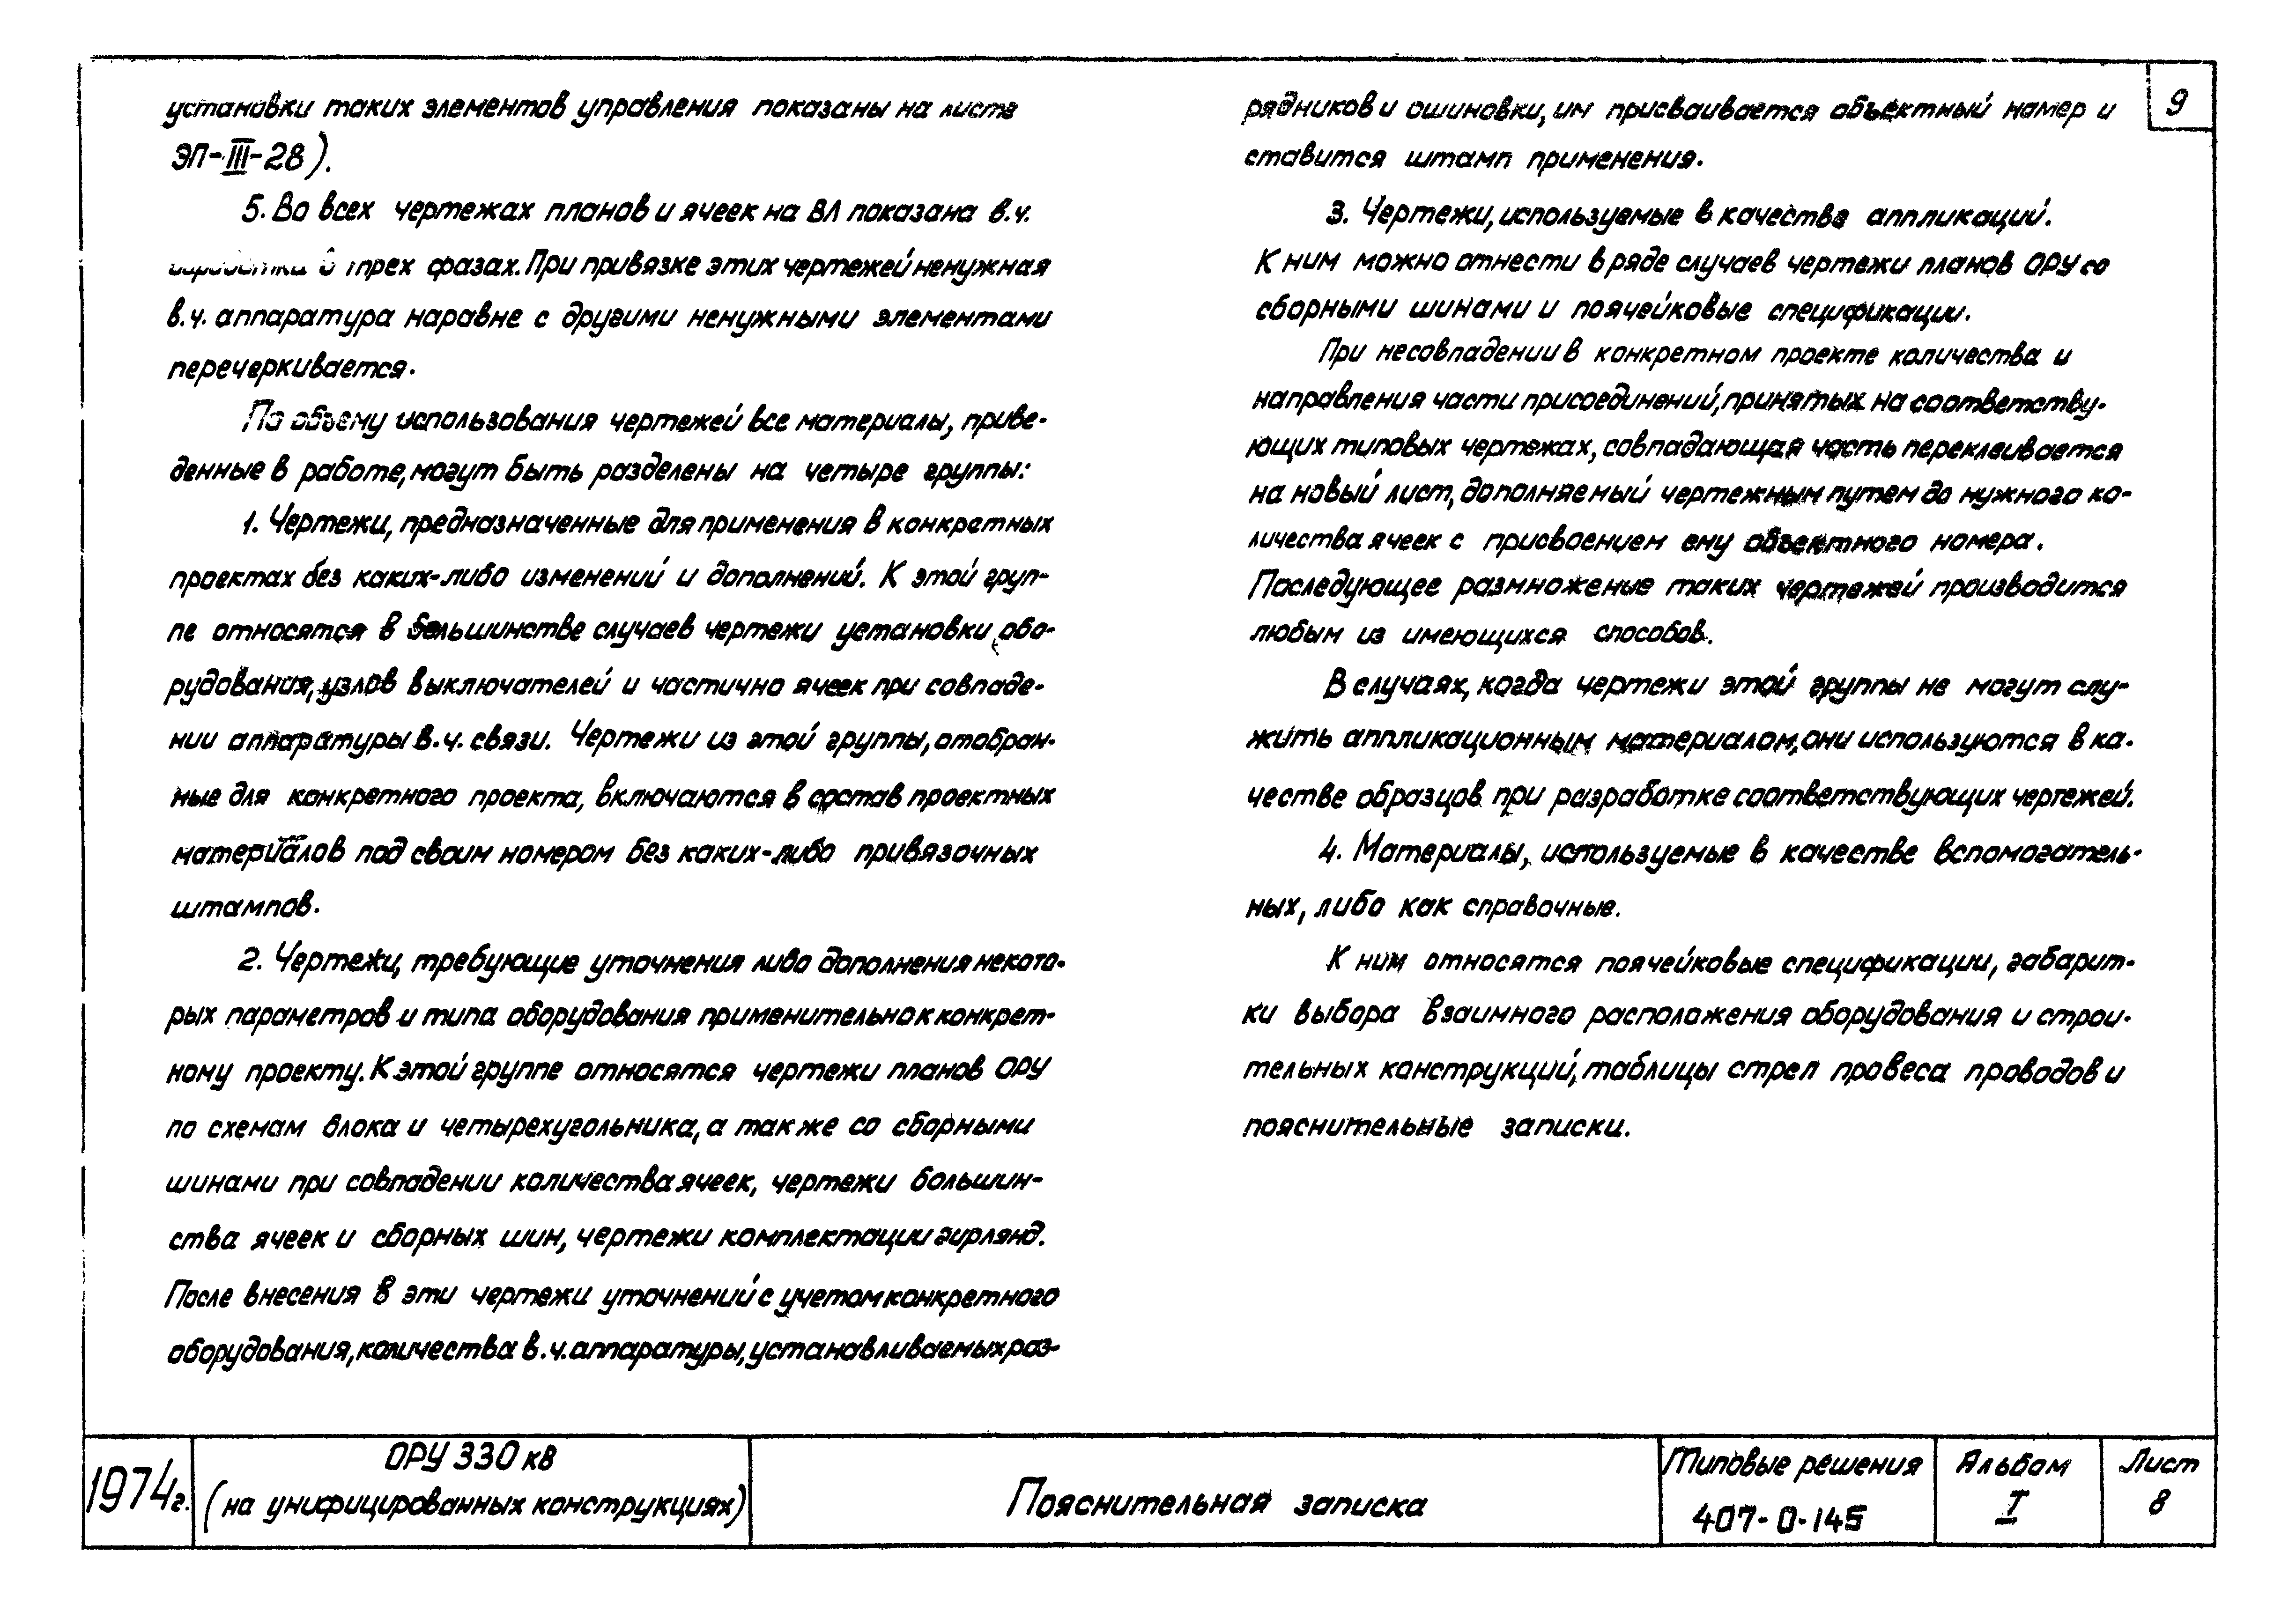 установки таких элементов управления показаны на листе
ЭП-III-28).
5. Во всех чертежах планов и ячеек на ВЛ показана в.ч.
в трех фазах. При привязке этих чертежей ненужная
в.ч. аппаратура наравне с другими ненужными элементами
перечеркивается.
По объему использования чертежей все материалы, приве-
денные в работе, могут быть разделены на четыре группы:
1. Чертежи, предназначенные для применения в конкретных
проектах без каких-либо изменений и дополнений. К этой груп-
пе относятся в большинстве случаев чертежи установки обо-
рудования, узлов выключателей и частично ячеек при совпаде-
нии аппаратуры в.ч. связи. Чертежи из этой группы, отобран-
ные для конкретного проекта, включаются в состав проектных
материалов под своим номером без каких-либо привязочных
штампов.
2. Чертежи, требующие уточнения либо дополнения некото-
рых параметров и типа оборудования применительно к конкрет-
ному проекту. К этой группе относятся чертежи планов ОРУ
по схемам блока и четырехугольника, а также со сборными
шинами при совпадении количества ячеек, чертежи большин-
ства ячеек и сборных шин, чертежи комплектации гирлянд.
После внесения в эти чертежи уточнений с учетом конкретного
оборудования, количества в.ч. аппаратуры, устанавливаемых раз-
рядников и ошиновки, им присваивается объектный намер и
ставится штамп применения.
3. Чертежи, используемые в качестве аппликаций.
К ним можно отнести в ряде случаев чертежи планов ОРУ со
сборными шинами и поячейковые спецификации.
При несовпадении в конкретном проекте количества и
направления части присоединений, принятых на соответству-
ющих типовых чертежах, совпадающая часть переклеивается
на новый лист, дополняемый чертежным путем до нужного ко-
личества ячеек с присвоением ему объектного номера.
Последующее размножение таких чертежей производится
любым из имеющихся способов.
В случаях, когда чертежи этой группы не могут слу-
жить аппликационным материалом, они используются в ка-
честве образцов при разработке соответствующих чертежей.
4. Материалы, используемые в качестве вспомогатель-
ных, либо как справочные.
К ним относятся поячейковые спецификации, габарит-
ки выбора взаимного расположения оборудования и строи-
тельных конструкций, таблицы стрел провеса проводов и
пояснительные записки.
9
1974г.
ОРУ 330 кВ
(на унифицированных конструкциях)
Пояснительная записка
Типовые решения
407-0-145
Альбом
I
Лист
8